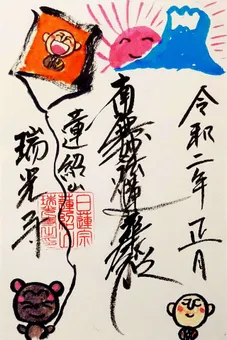 令和二年 正月
南無妙法蓮華経
蓮紹山
瑞光寺
日蓮宗
蓮紹山